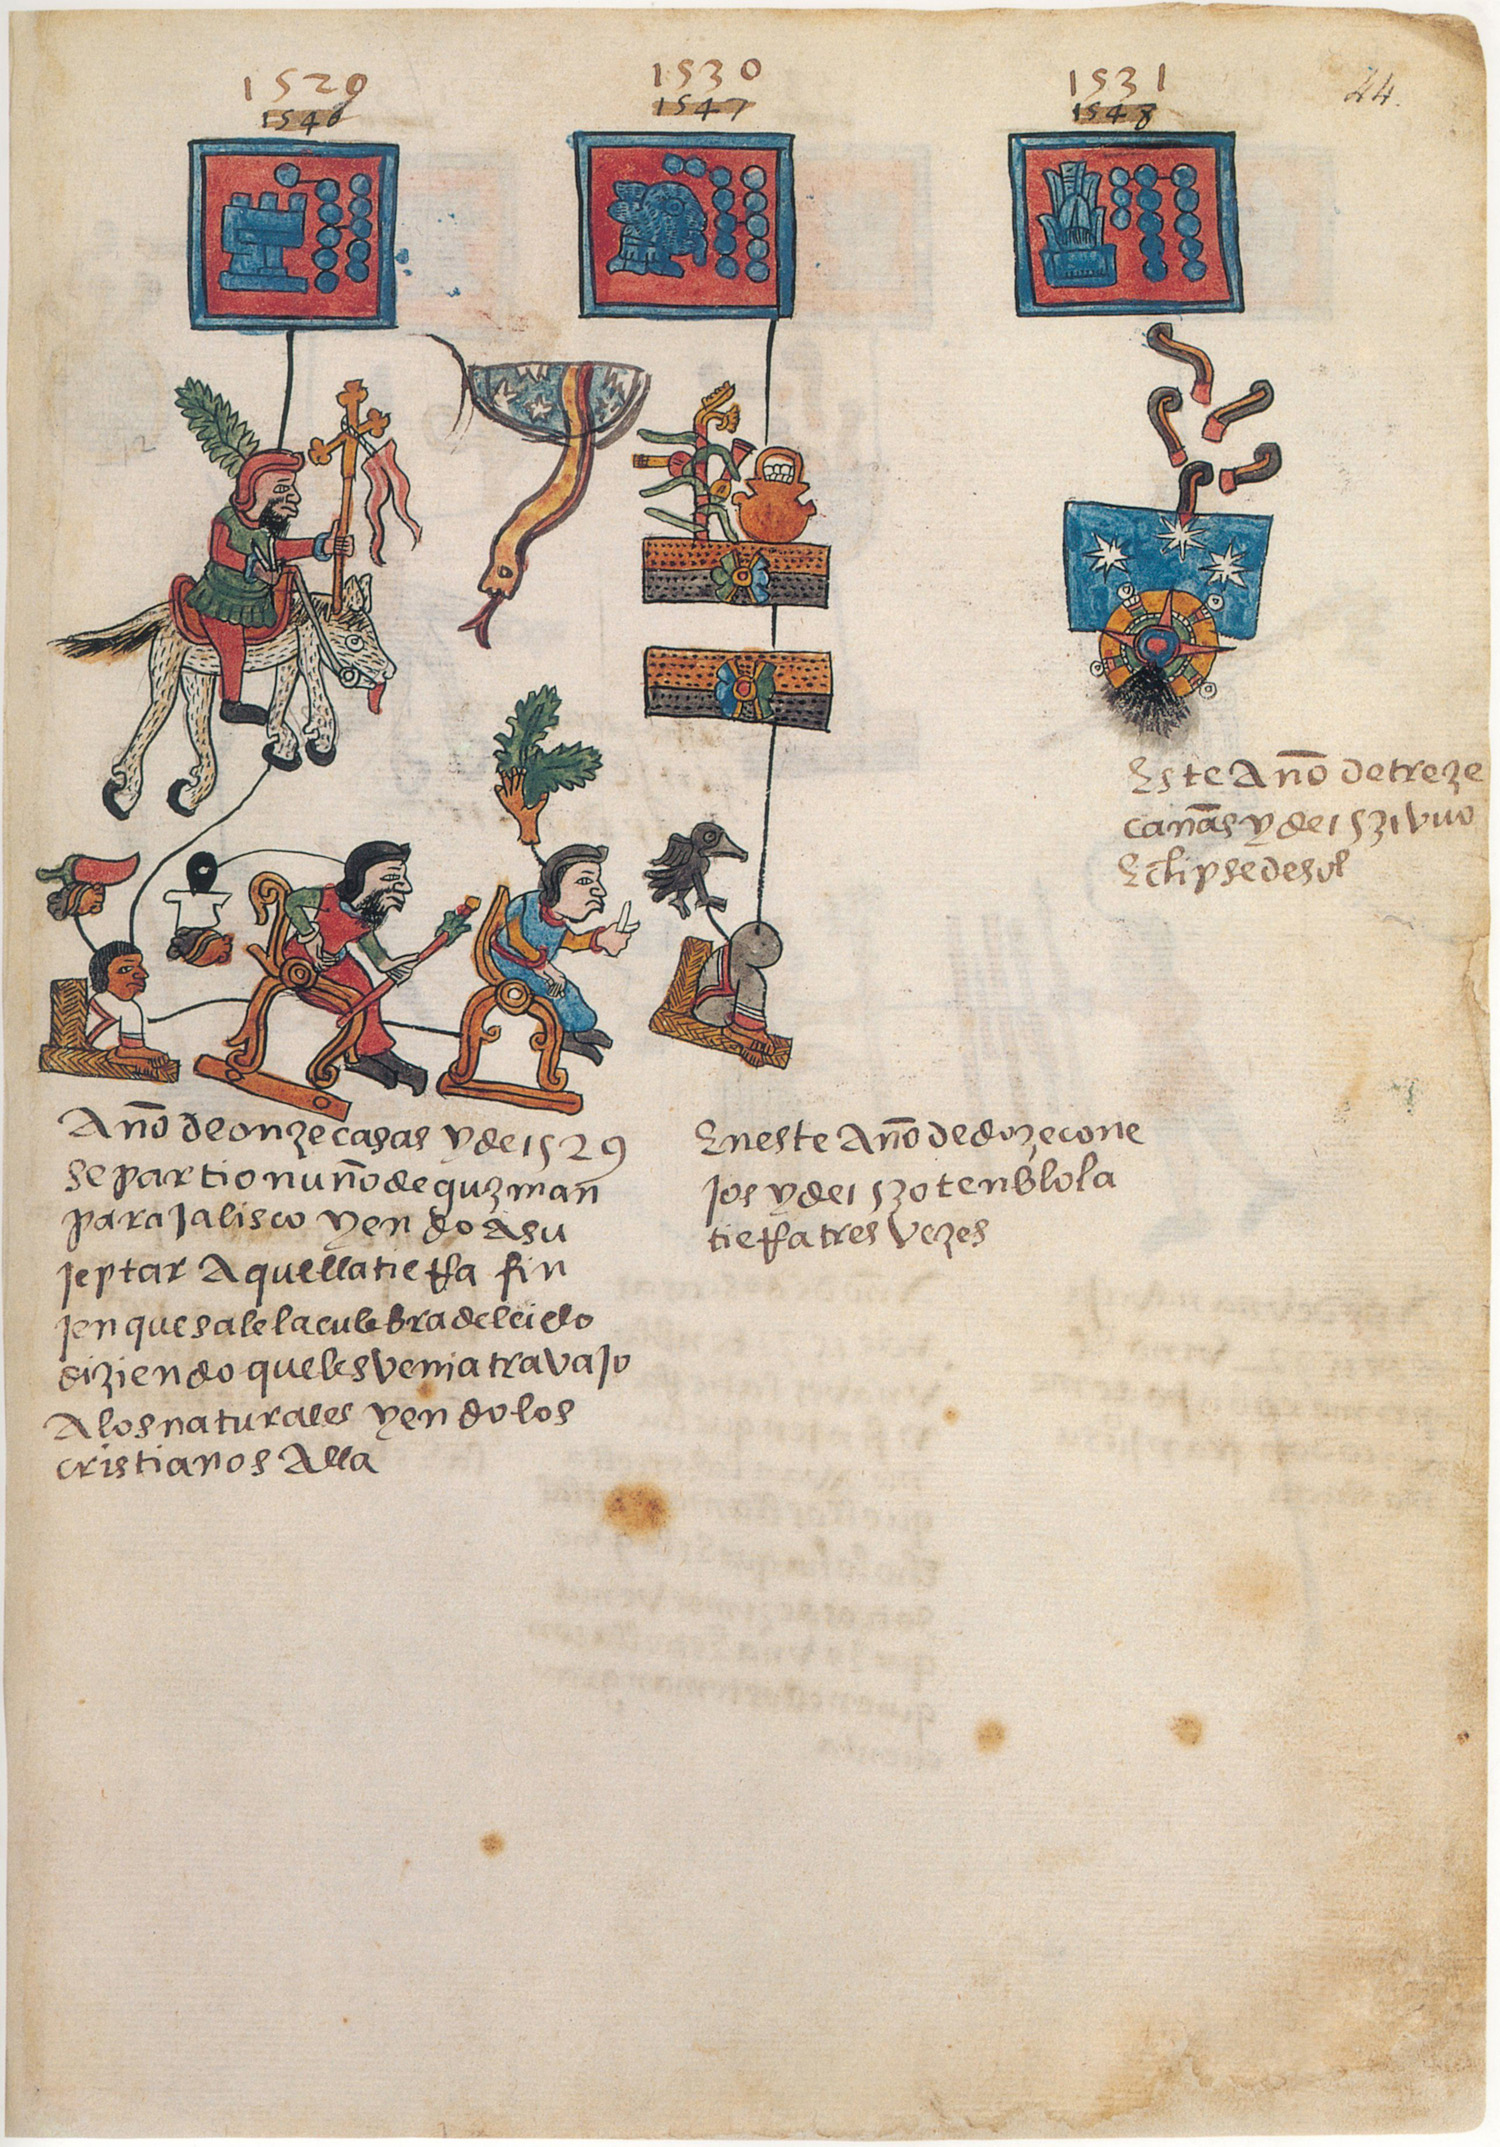 1529
1546
1530
1547
1531
1548
44.
Este Año de treze
cañas y de 1531 vuo
Eclipse de sol
Año de onze casas y de 1529
se partio nuño de guzman
para Jalisco yendo a su
jeptar Aquella tierra fin
jen que sale la culebra del cielo
diziendo que les venia travajo
A los naturales yendo los
cristianos Alla
En este Año de doze cone
jos y de 1530 tenblo la
tierra tres vezes